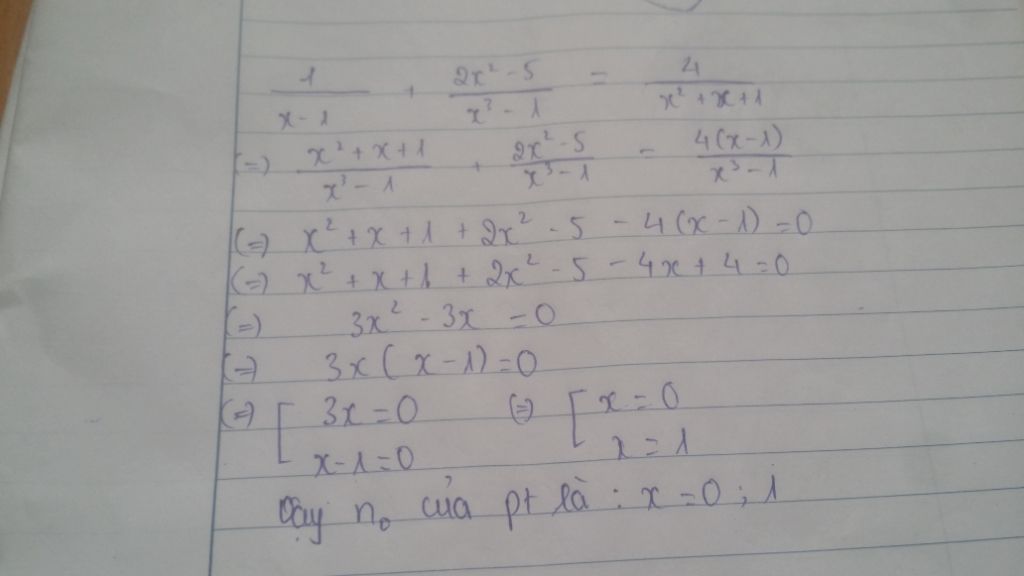 1/(x-1) + (2x² - 5)/(x³ - 1) = 4/(x² + x + 1)
(=) (x² + x + 1)/(x³ - 1) + (2x² - 5)/(x³ - 1) = 4(x-1)/(x³ - 1)
(=) x² + x + 1 + 2x² - 5 - 4(x-1) = 0
(=) x² + x + 1 + 2x² - 5 - 4x + 4 = 0
(=) 3x² - 3x = 0
(=) 3x(x-1) = 0
(=) [ 3x = 0 (=) [ x = 0
x-1 = 0 x = 1
Vậy n₀ của pt là : x = 0 ; 1